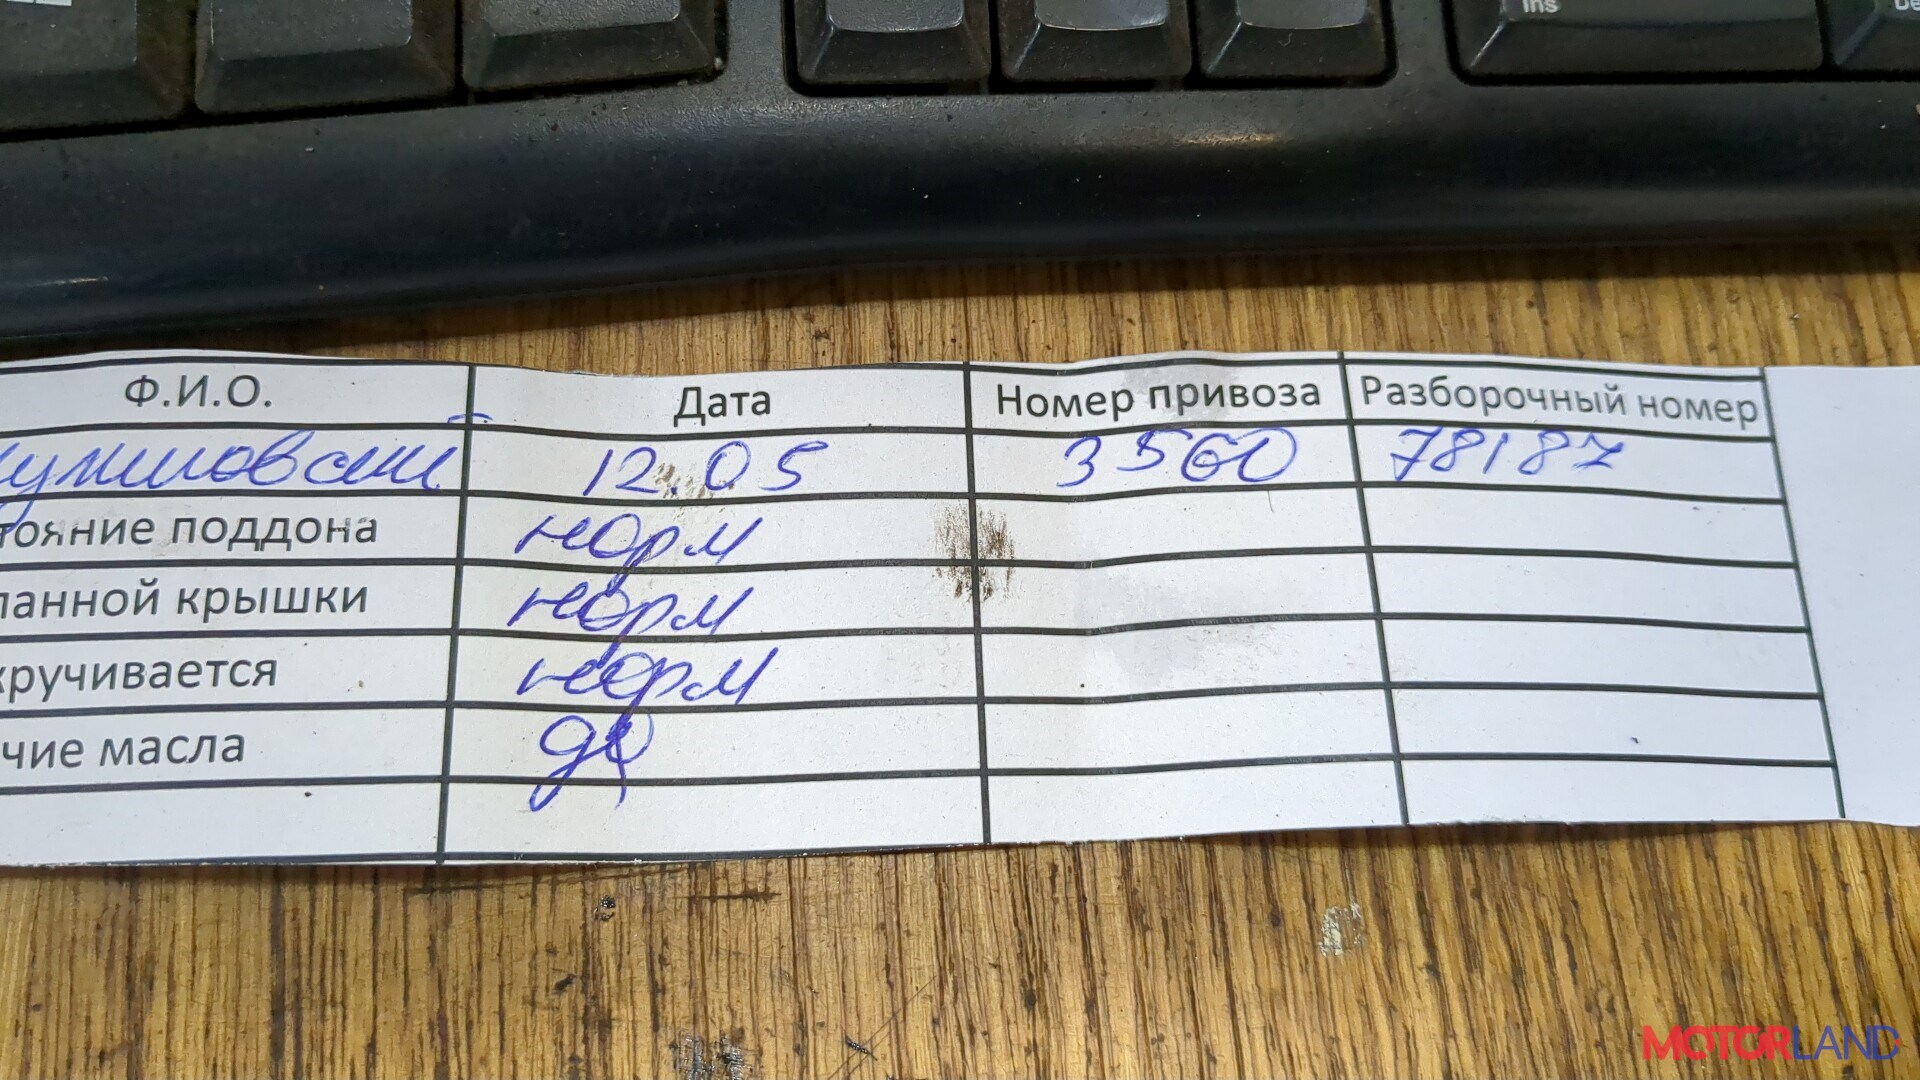 Ins
Ф.И.О. Дата Номер привоза Разборочный номер
12.05 3560 78187
тояние поддона норм
панной крышки норм
кручивается норм
чие масла да
MOTORLAND